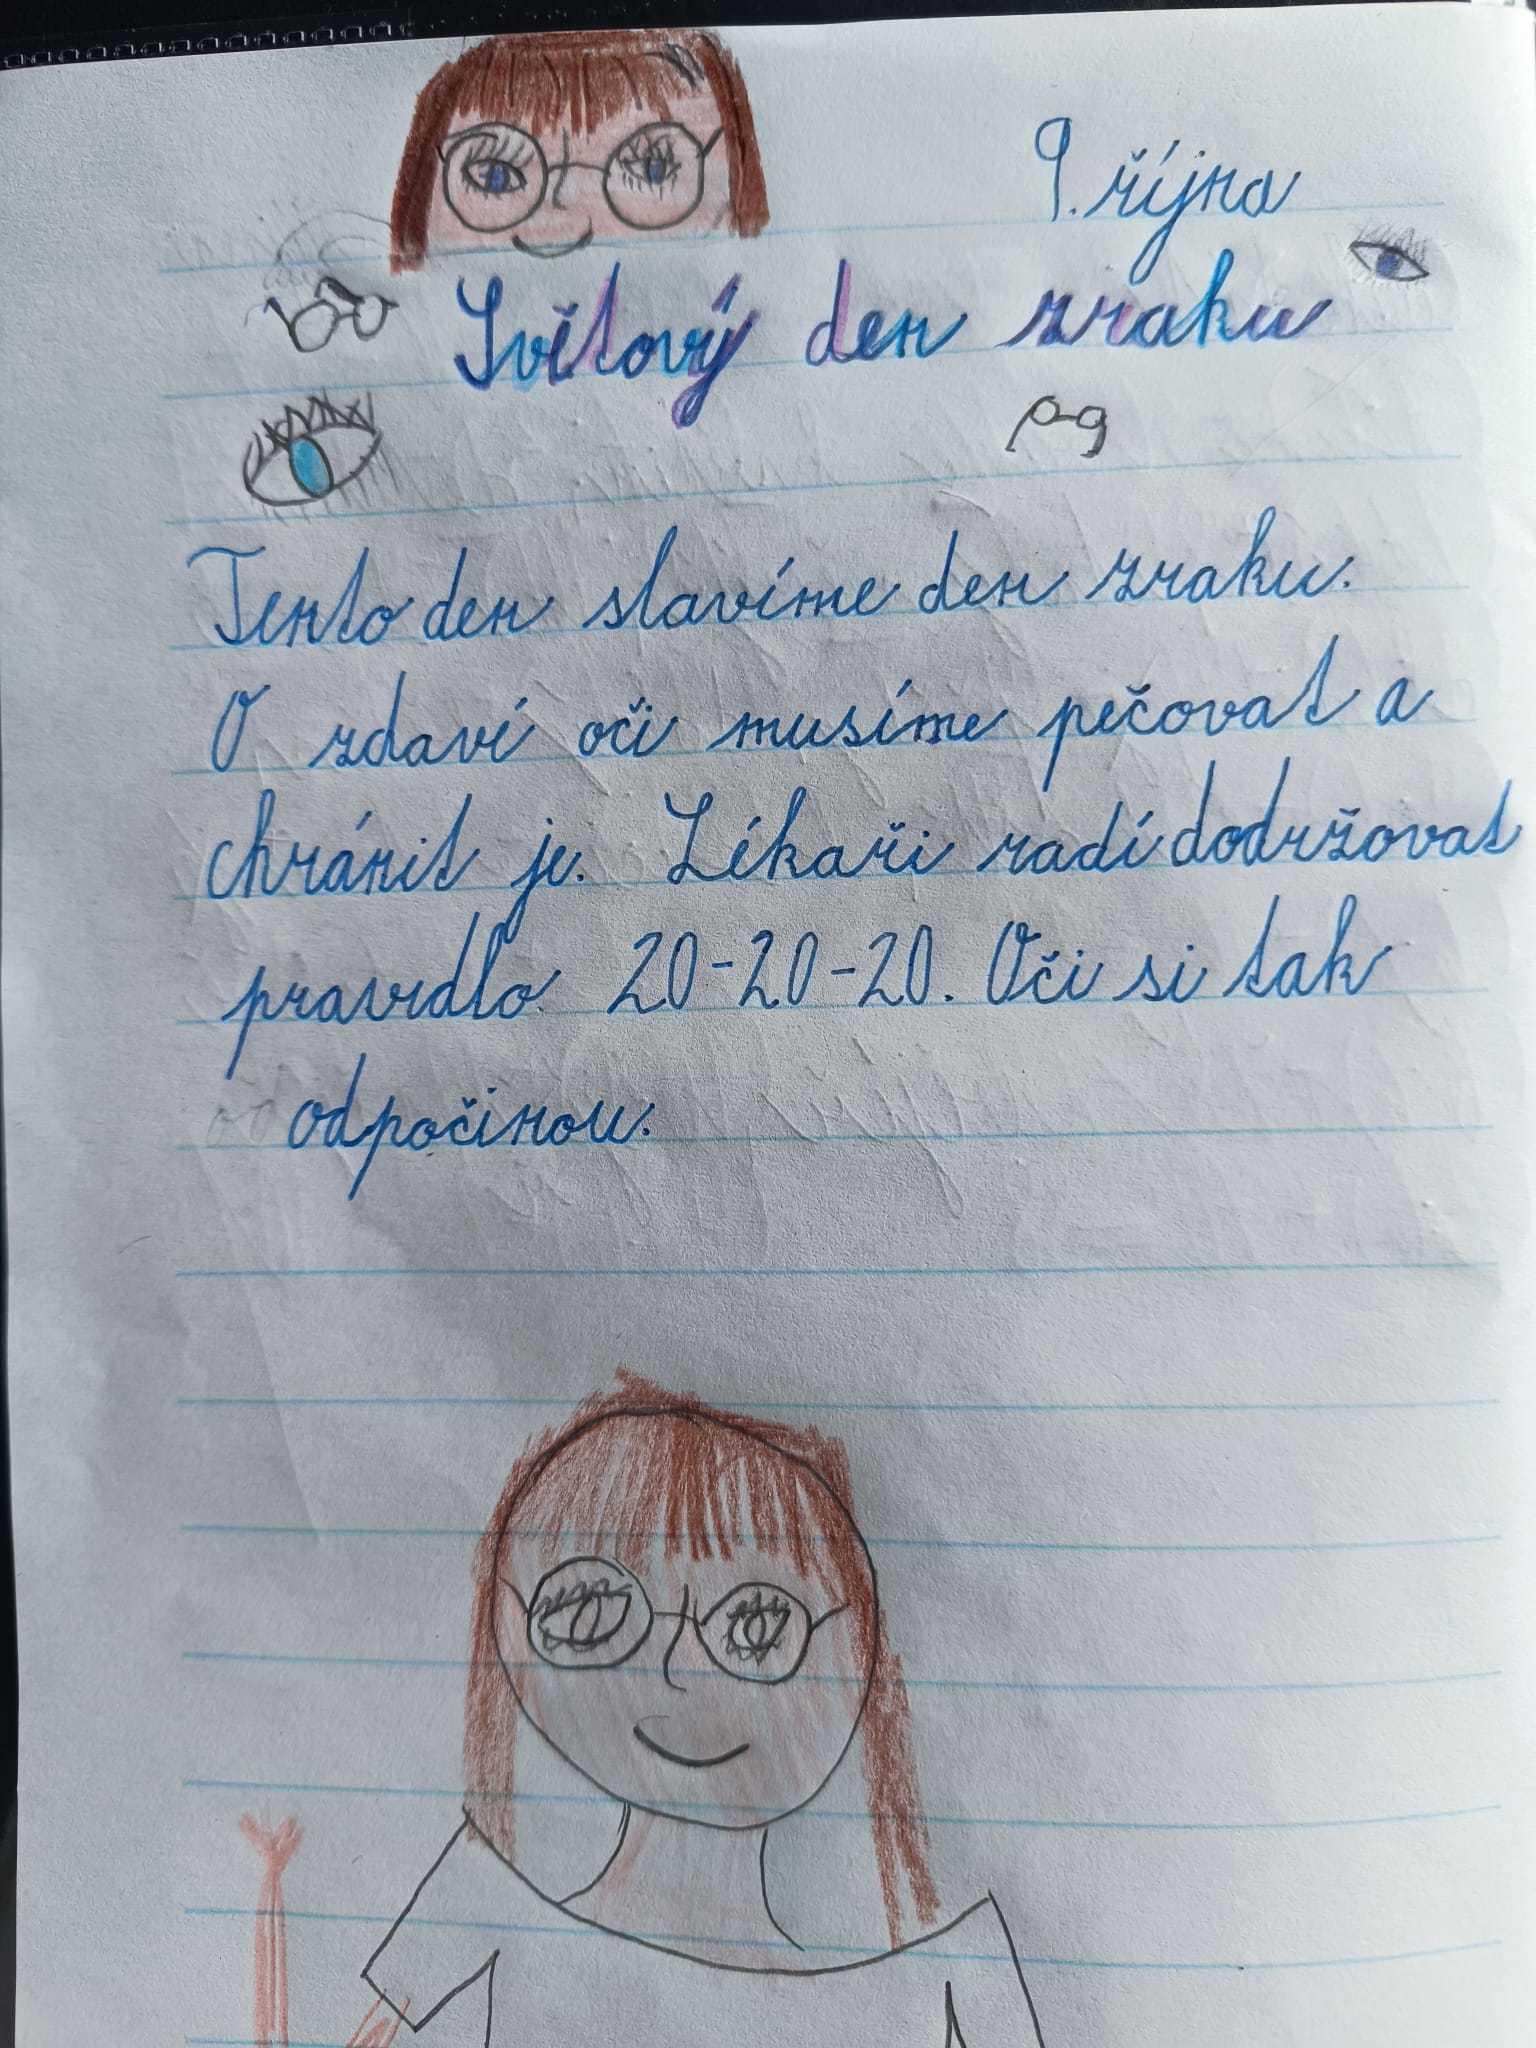 9. října
Světový den zraku
Tento den slavíme den zraku.
O zdaví oči musíme pečovat a
chránit je. Lékaři radí dodržovat
pravidlo 20-20-20. Oči si tak
odpočinou.